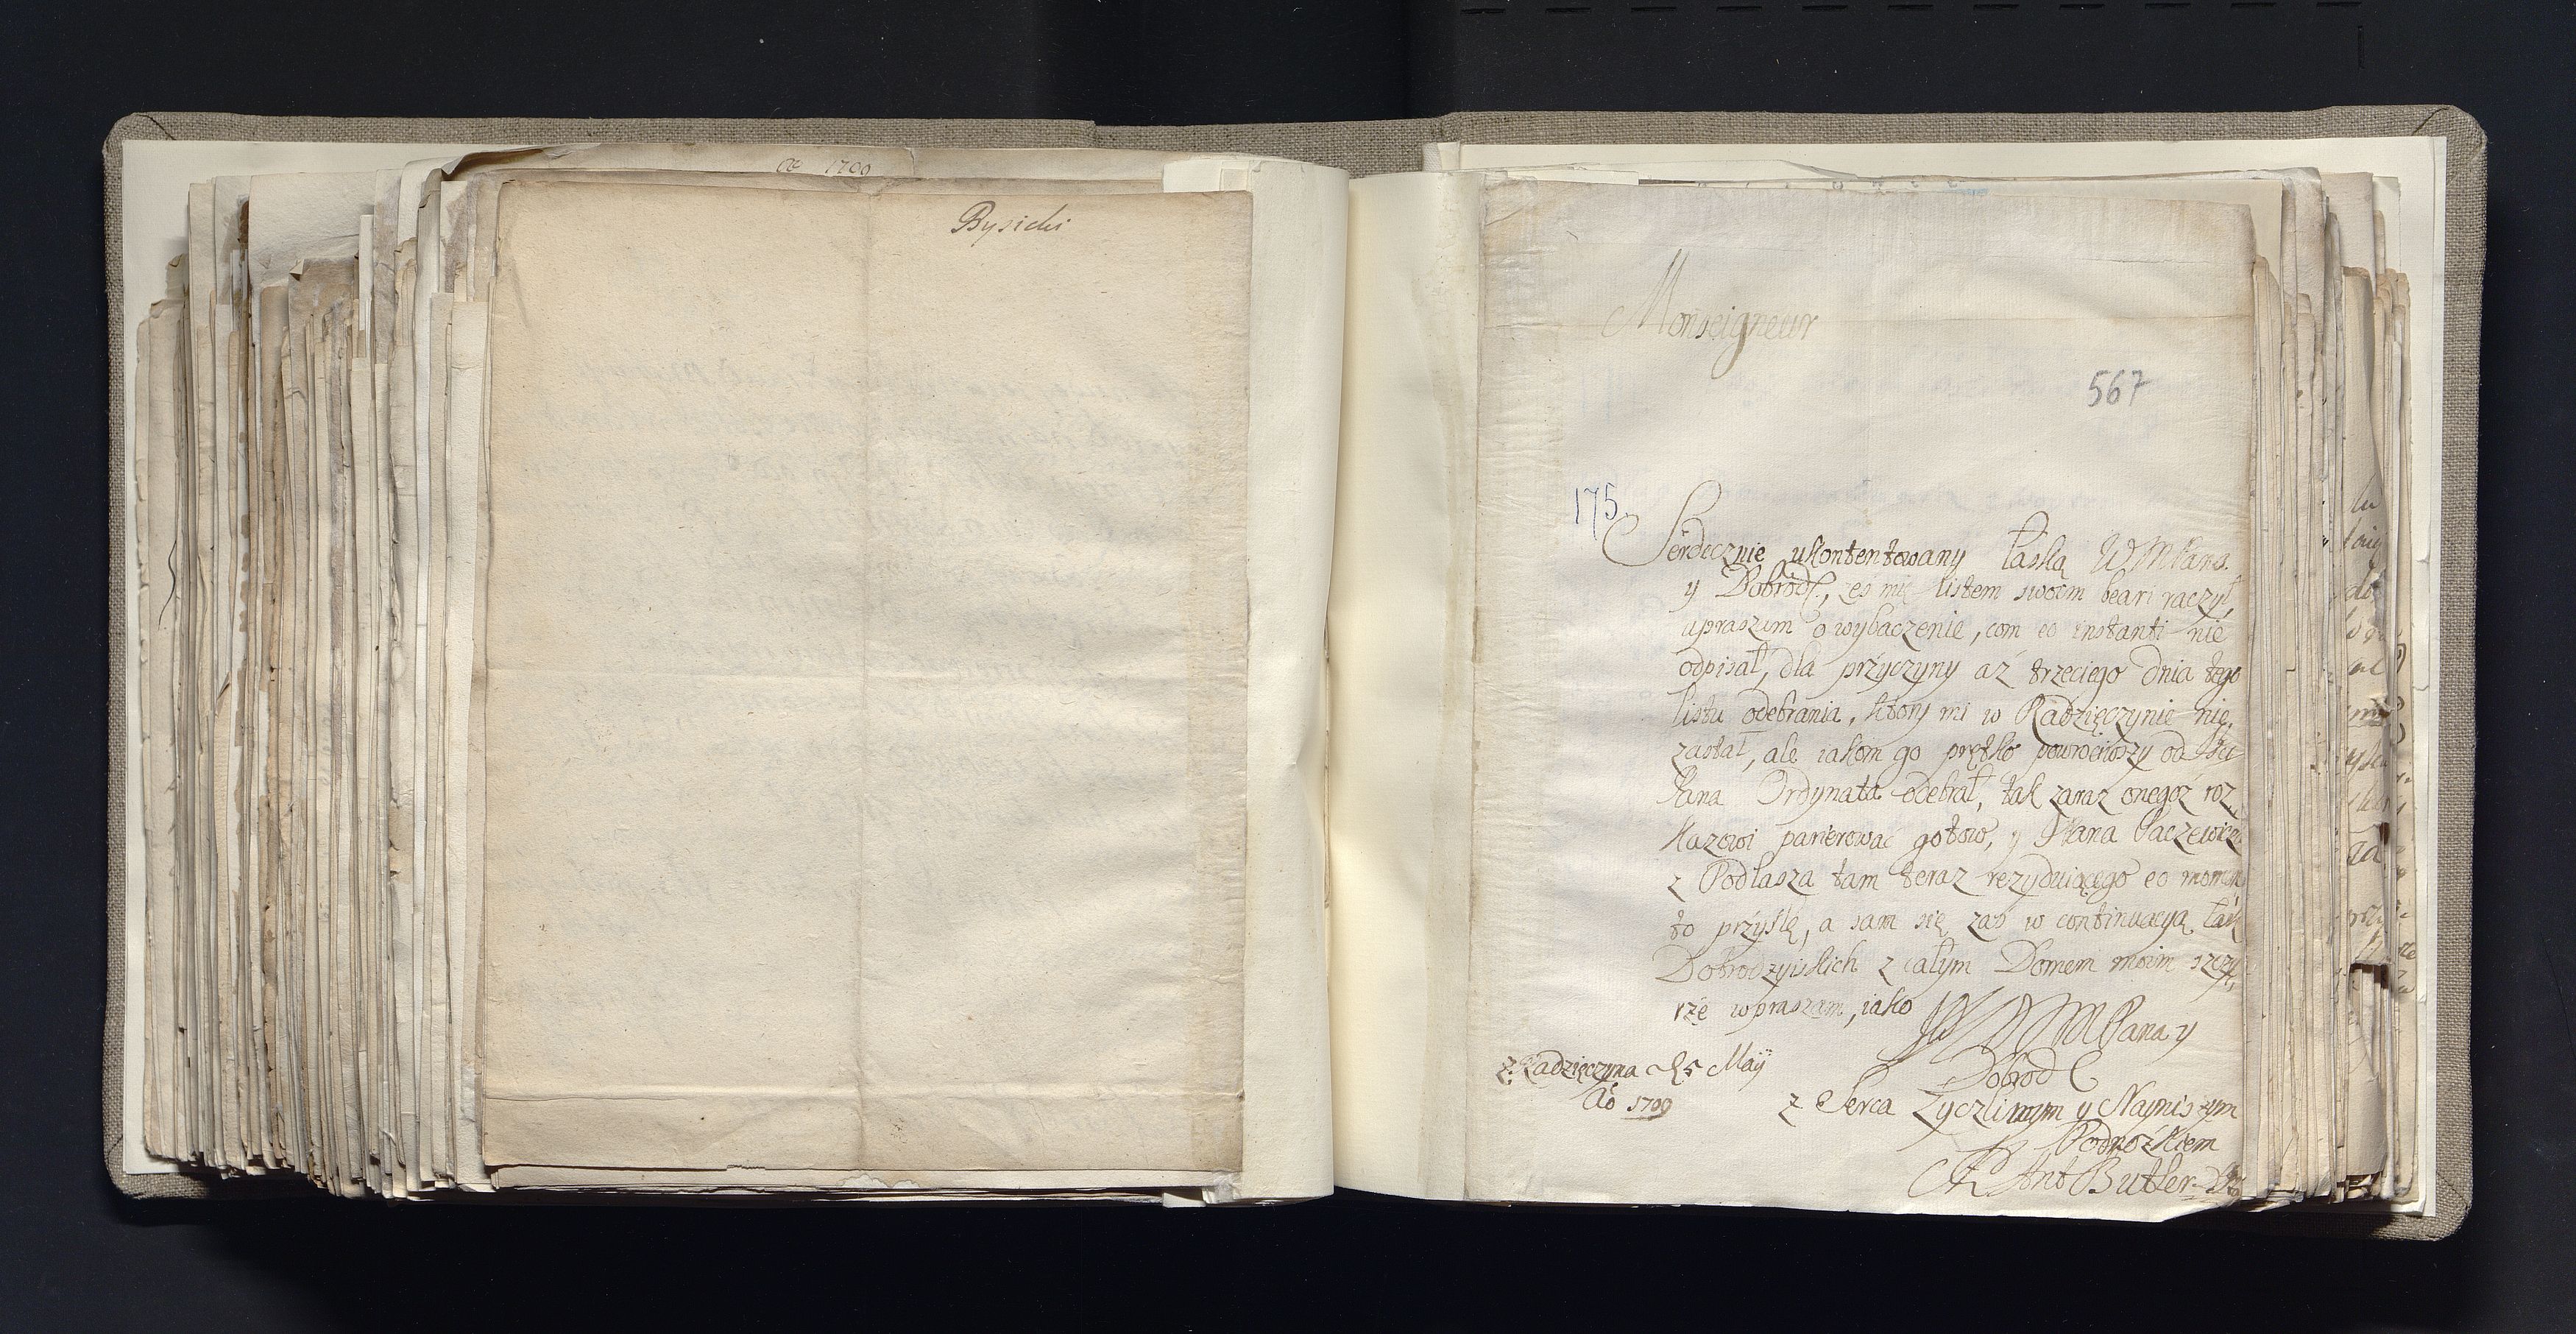 1700
Bysicki
Monseigneur
567
175.
Serdecznie ukontentowany łaską WMPana
y Dobrodź, żeś mię listem swoim beari raczył,
upraszam o wybaczenie, com eo instanti nie
odpisał, dla przyczyny aż trzeciego dnia tego
listu odebrania, ktory mi w Radzięczynie nie
zastał, ale iakom go prętko powrociwszy od
Pana Ordynata odebrał, tak zaraz onegoż roz
kazowi parierować gotow, y Pana Paczewicza
z Podlasza tam teraz rezyduiącego eo momen
to przyślę, a sam się zaś w continuacyą łask
Dobrodzyiskich z całym Domem moim szczy
rze wpraszam, iako
WMMPana y
Dobrodź
z Radzięczyna 25 Maÿ
Ao 1709
z Serca Zyczliwym y Nayniszym
Podnożkiem
Ant Butler